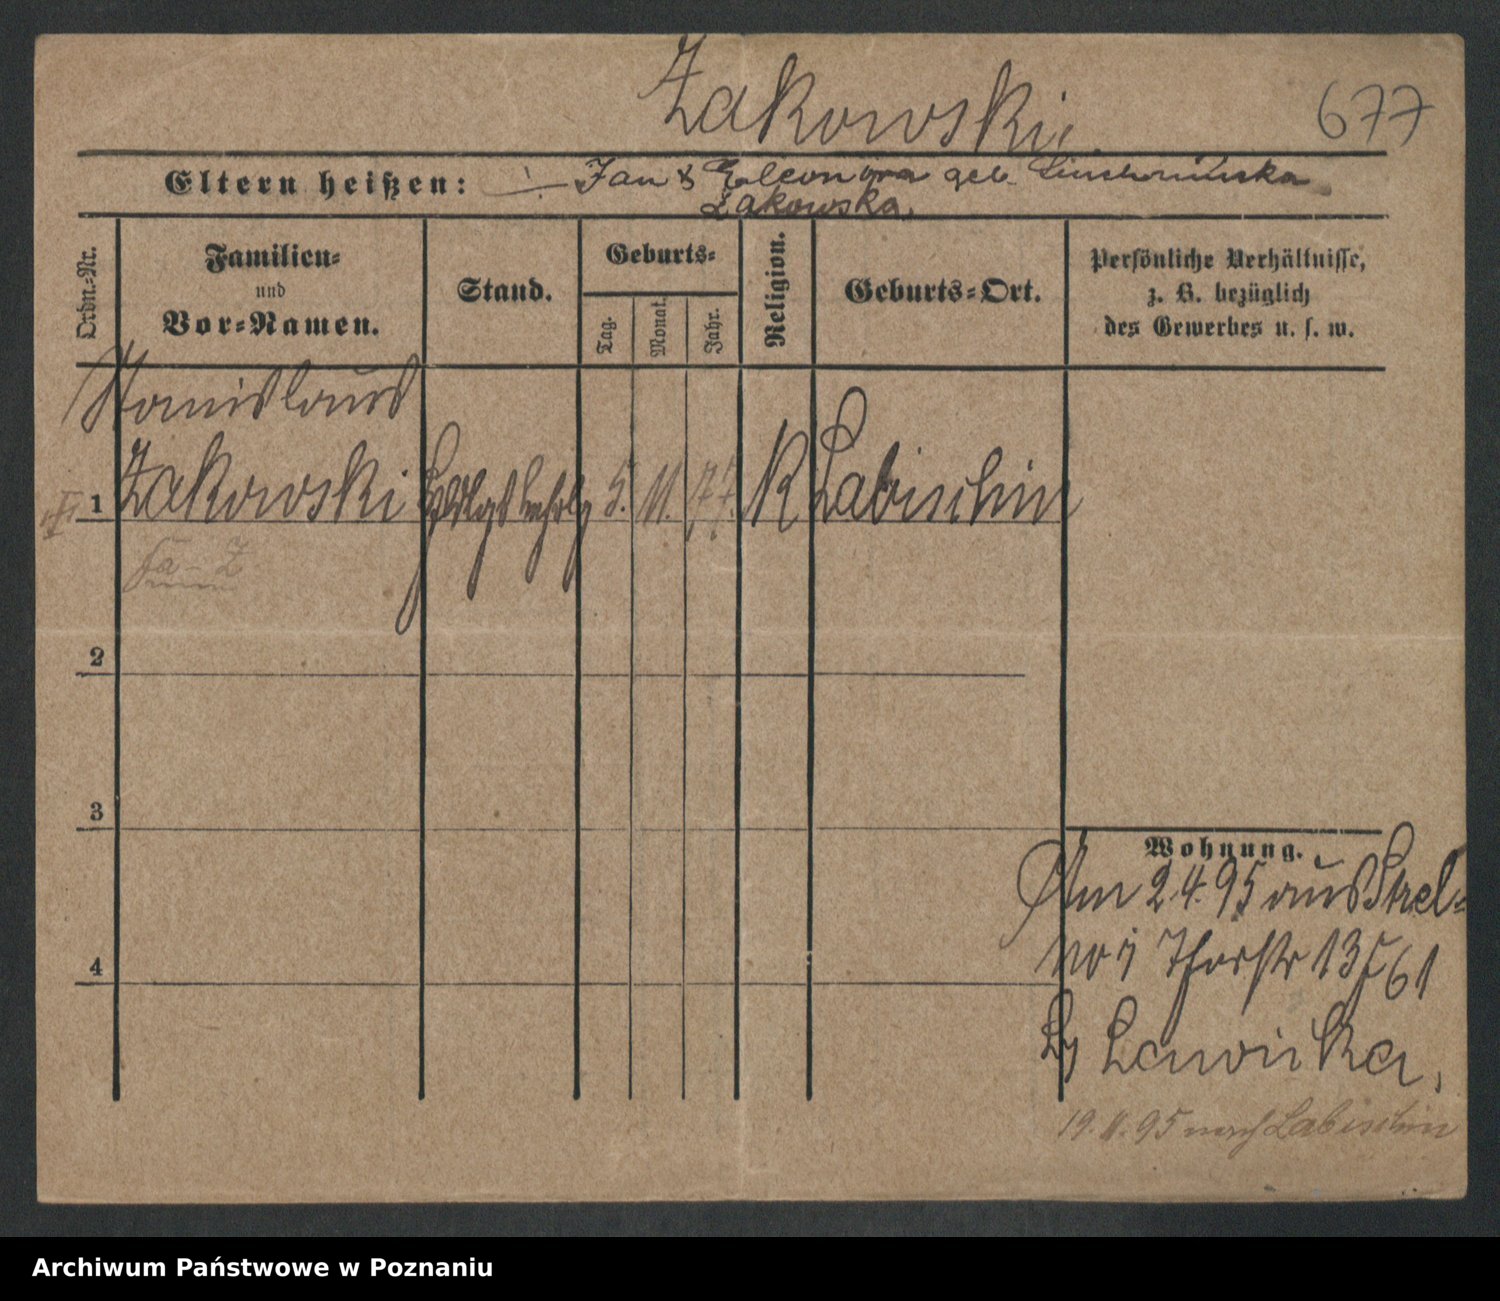 Zakowski.
677
Eltern heißen: Jan & Eleonora geb.
Zakowska.
Ordn.-Nr.
Familien-
und
Vor-Namen.
Stand.
Geburts-
Tag.
Monat.
Jahr.
Religion.
Geburts-Ort.
Persönliche Verhältnisse,
z. B. bezüglich
des Gewerbes u. s. w.
Stanislaus
1 Zakowski 5. 11. 77. K Labischin
2
3
4
Wohnung.
Am 2.4.95 aus Strel-
no j Thorstr 13
Lawicka.
19. 11. 95 nach Labischin
Archiwum Państwowe w Poznaniu